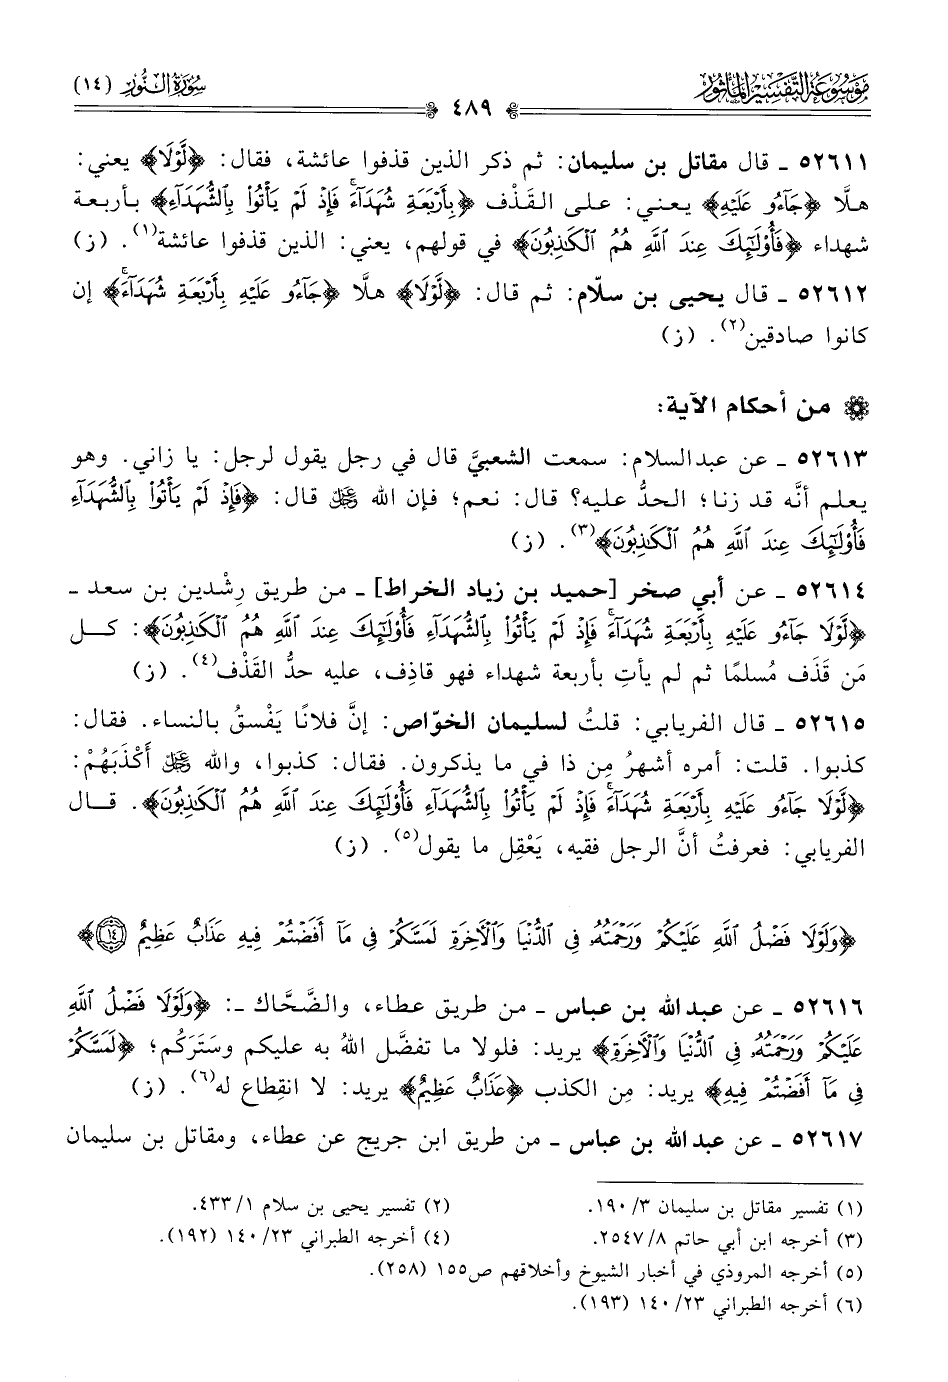 مَوْسُوعَة التَّفْسِيْر المَأْثُور
سُورَةُ النُّورِ (١٤)
٤٨٩
٥٢٦١١ - قال مقاتل بن سليمان: ثم ذكر الذين قذفوا عائشة، فقال: ﴿لَّوْلَا﴾ يعني:
هلَّا ﴿جَآءُو عَلَيْهِ﴾ يعني: على القَذْف ﴿بِأَرْبَعَةِ شُهَدَآءَۚ فَإِذْ لَمْ يَأْتُوا۟ بِٱلشُّهَدَآءِ﴾ بأربعة
شهداء ﴿فَأُو۟لَـٰٓئِكَ عِندَ ٱللَّهِ هُمُ ٱلْكَـٰذِبُونَ﴾ في قولهم، يعني: الذين قذفوا عائشة(١). (ز)
٥٢٦١٢ - قال يحيى بن سلّام: ثم قال: ﴿لَّوْلَا﴾ هلَّا ﴿جَآءُو عَلَيْهِ بِأَرْبَعَةِ شُهَدَآءَۚ﴾ إن
كانوا صادقين(٢). (ز)
من أحكام الآية:
٥٢٦١٣ - عن عبدالسلام: سمعت الشعبيَّ قال في رجل يقول لرجل: يا زاني. وهو
يعلم أنَّه قد زنا؛ الحدُّ عليه؟ قال: نعم؛ فإن الله ﷻ قال: ﴿فَإِذْ لَمْ يَأْتُوا۟ بِٱلشُّهَدَآءِ
فَأُو۟لَـٰٓئِكَ عِندَ ٱللَّهِ هُمُ ٱلْكَـٰذِبُونَ﴾(٣). (ز)
٥٢٦١٤ - عن أبي صخر [حميد بن زياد الخراط] - من طريق رِشْدين بن سعد -
﴿لَّوْلَا جَآءُو عَلَيْهِ بِأَرْبَعَةِ شُهَدَآءَۚ فَإِذْ لَمْ يَأْتُوا۟ بِٱلشُّهَدَآءِ فَأُو۟لَـٰٓئِكَ عِندَ ٱللَّهِ هُمُ ٱلْكَـٰذِبُونَ﴾: كل
مَن قَذَف مُسلمًا ثم لم يأتِ بأربعة شهداء فهو قاذِف، عليه حدُّ القَذْف(٤). (ز)
٥٢٦١٥ - قال الفريابي: قلتُ لسليمان الخوّاص: إنَّ فلانًا يَفْسقُ بالنساء. فقال:
كذبوا. قلت: أمره أشهرُ مِن ذا في ما يذكرون. فقال: كذبوا، والله ﷻ أَكْذَبَهُمْ:
﴿لَّوْلَا جَآءُو عَلَيْهِ بِأَرْبَعَةِ شُهَدَآءَۚ فَإِذْ لَمْ يَأْتُوا۟ بِٱلشُّهَدَآءِ فَأُو۟لَـٰٓئِكَ عِندَ ٱللَّهِ هُمُ ٱلْكَـٰذِبُونَ﴾. قال
الفريابي: فعرفتُ أنَّ الرجل فقيه، يَعْقِل ما يقول(٥). (ز)
﴿وَلَوْلَا فَضْلُ ٱللَّهِ عَلَيْكُمْ وَرَحْمَتُهُۥ فِى ٱلدُّنْيَا وَٱلْـَٔاخِرَةِ لَمَسَّكُمْ فِى مَآ أَفَضْتُمْ فِيهِ عَذَابٌ عَظِيمٌ ١٤﴾
٥٢٦١٦ - عن عبدالله بن عباس - من طريق عطاء، والضَّحَّاك -: ﴿وَلَوْلَا فَضْلُ ٱللَّهِ
عَلَيْكُمْ وَرَحْمَتُهُۥ فِى ٱلدُّنْيَا وَٱلْـَٔاخِرَةِ﴾ يريد: فلولا ما تفضَّل اللهُ به عليكم وسَتَرَكُم؛ ﴿لَمَسَّكُمْ
فِى مَآ أَفَضْتُمْ فِيهِ﴾ يريد: مِن الكذب ﴿عَذَابٌ عَظِيمٌ﴾ يريد: لا انقِطاع له(٦). (ز)
٥٢٦١٧ - عن عبدالله بن عباس - من طريق ابن جريج عن عطاء، ومقاتل بن سليمان
(١) تفسير مقاتل بن سليمان ٣/ ١٩٠.
(٢) تفسير يحيى بن سلام ١/ ٤٣٣.
(٣) أخرجه ابن أبي حاتم ٨/ ٢٥٤٧.
(٤) أخرجه الطبراني ٢٣/ ١٤٠ (١٩٢).
(٥) أخرجه المروذي في أخبار الشيوخ وأخلاقهم ص١٥٥ (٢٥٨).
(٦) أخرجه الطبراني ٢٣/ ١٤٠ (١٩٣).